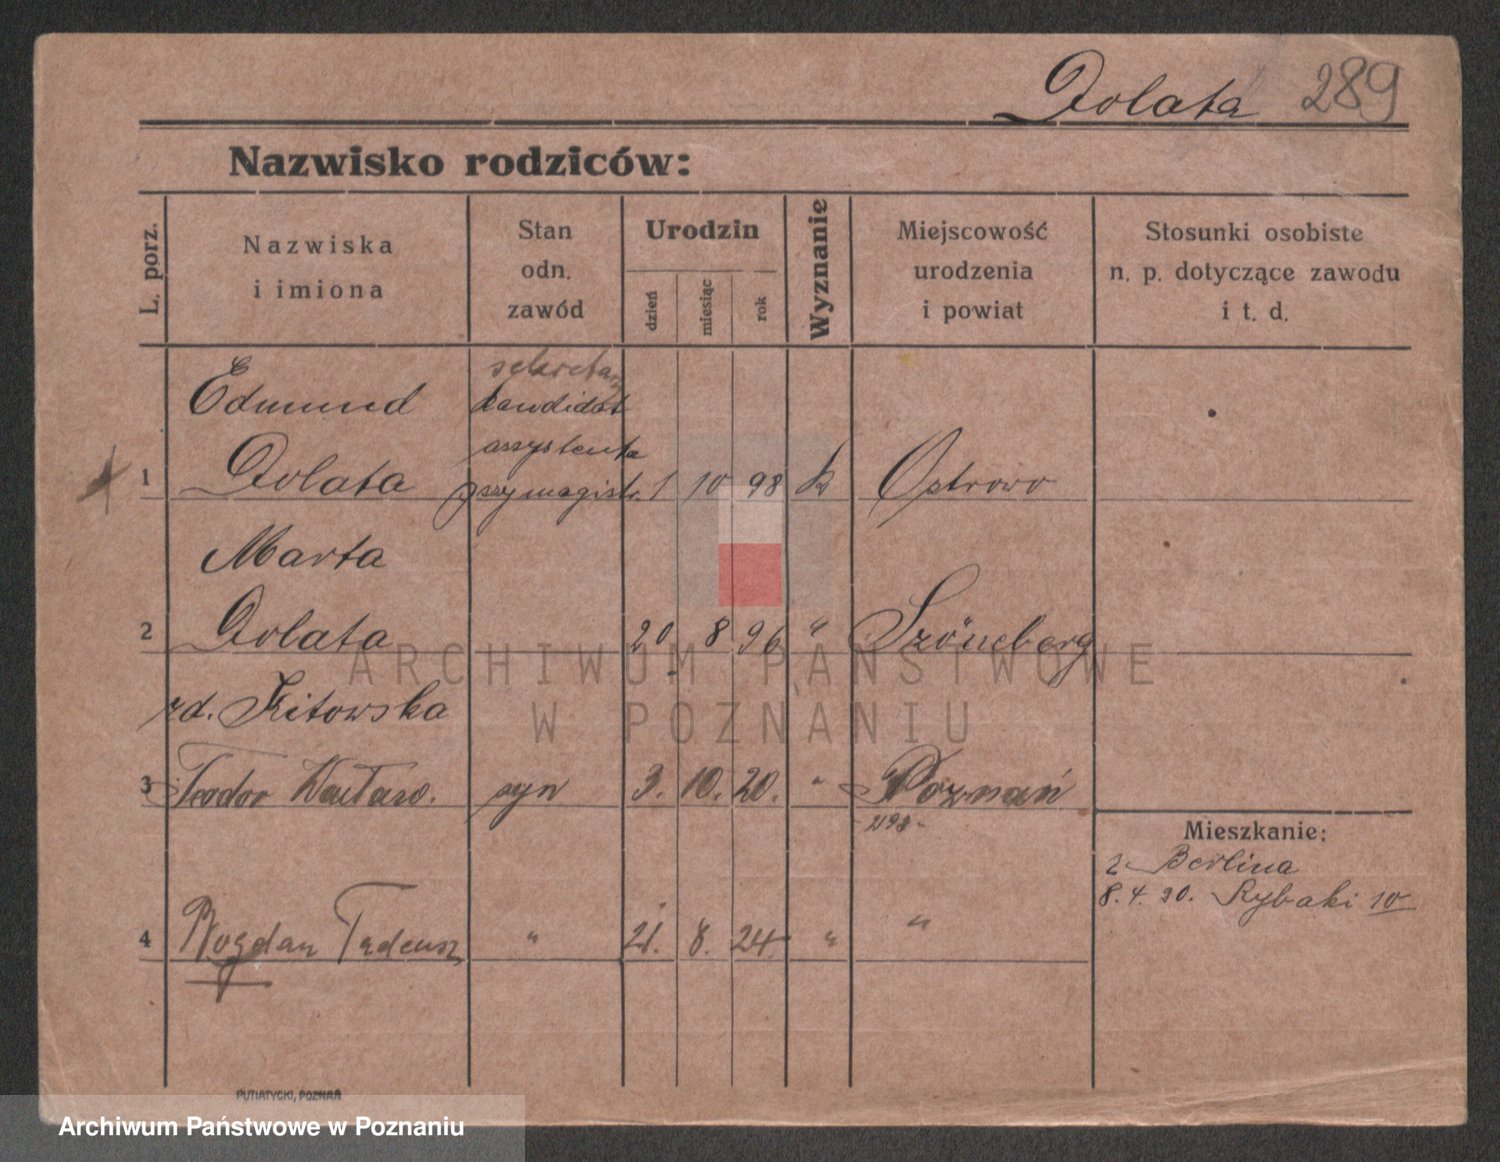 Dolata 289
Nazwisko rodziców:
L. porz.
Nazwiska
i imiona
Stan
odn.
zawód
Urodzin
dzień
miesiąc
rok
Wyznanie
Miejscowość
urodzenia
i powiat
Stosunki osobiste
n. p. dotyczące zawodu
i t. d.
sekretarz
Edmund kandidat
assystenta
1 Dolata przy magistr. 1 10 98 k Ostrowo
Marta
2 Dolata 20 8 96 " Szöneberg
zd. Kitowska
3 Teodor syn 3. 10. 20. " Poznań
2198
Mieszkanie:
z Berlina
8. 4. 20. Rybaki 10
4 Bogdan Tadeusz " 21. 8. 24. " "
PUTIATYCKI, POZNAŃ
ARCHIWUM PAŃSTWOWE
W POZNANIU
Archiwum Państwowe w Poznaniu